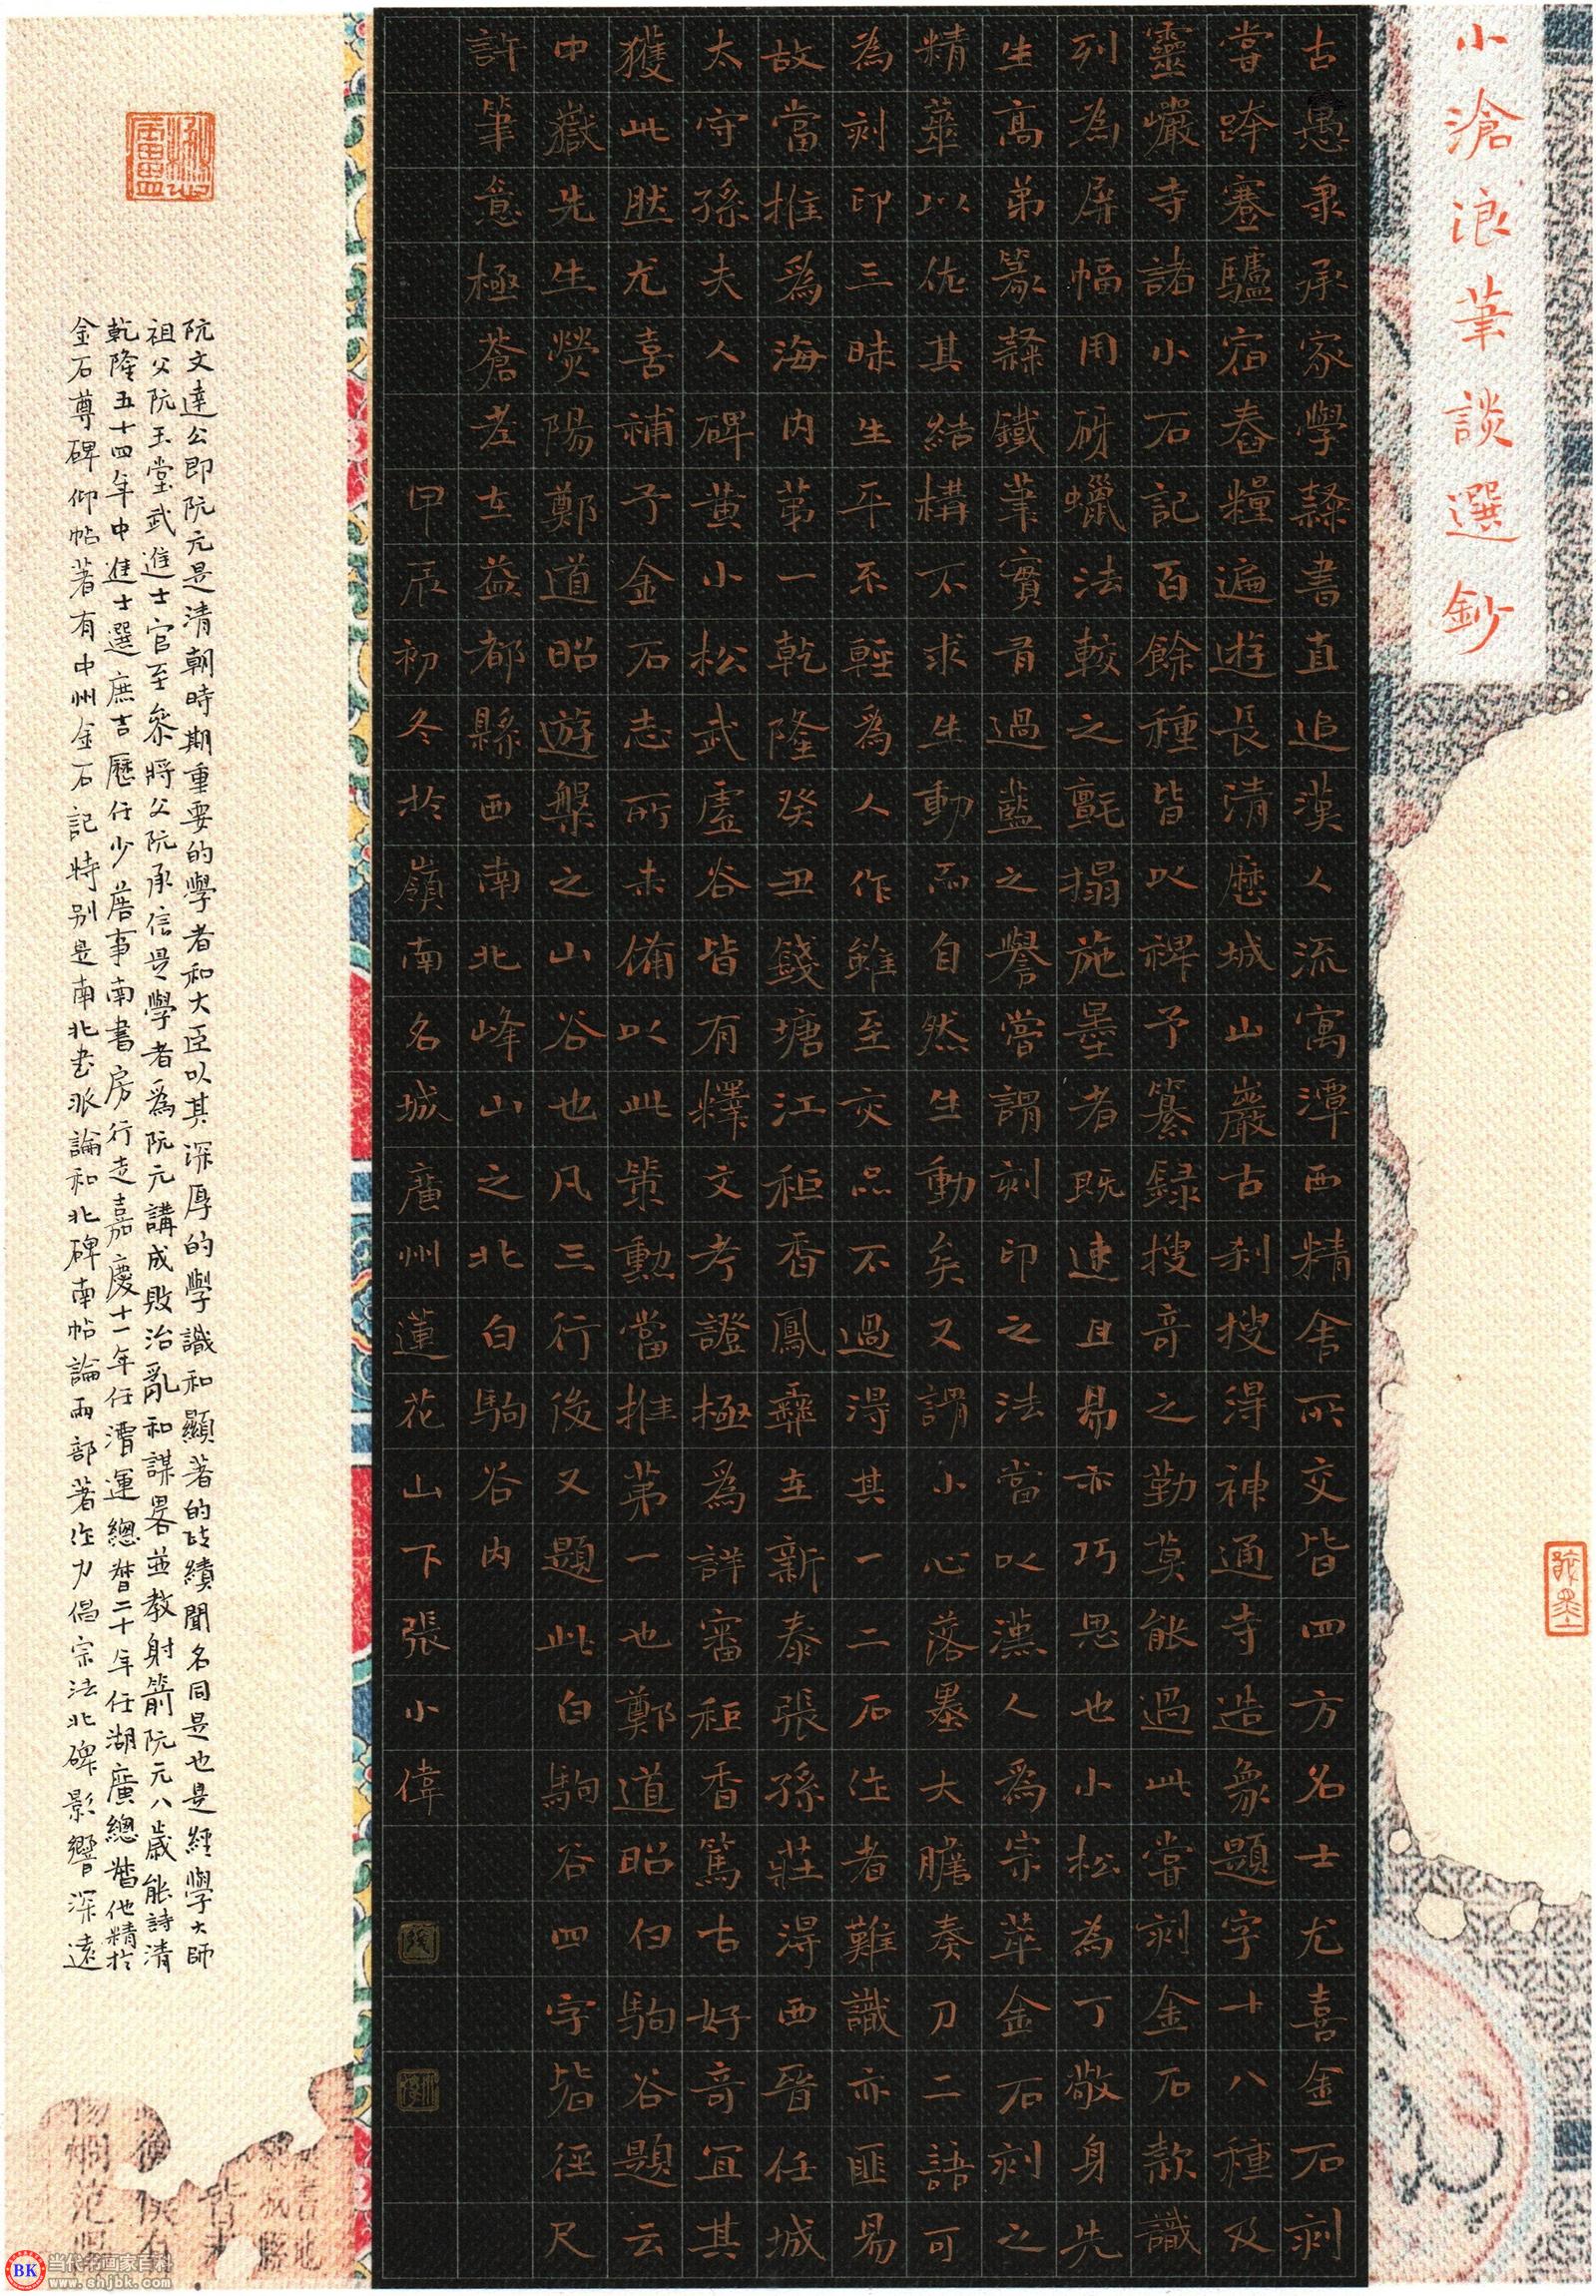 小滄浪筆談選鈔
古愚秉承家學隸書直追漢人流寓潭西精舍所交皆四方名士尤喜金石刻
嘗跨蹇驢宿舂糧遍遊長清歷城山巖古刹搜得神通寺造象題字十八種及
靈巖寺諸小石記百餘種皆以裨予纂録搜奇之勤莫能過此嘗刻金石款識
列為屏幅用砑蠟法較之氈搨施墨者既速且易亦巧思也小松為丁敬身先
生高弟篆隸鐵筆實有過藍之譽嘗謂刻印之法當以漢人為宗萃金石刻之
精華以佐其結構不求生動而自然生動矣又謂小心落墨大膽奏刀二語可
為刻印三昧生平不輕為人作雖至交品不過得其一二石住者難識亦匪易
故當推為海內第一乾隆癸丑錢塘江秬香鳳彝在新泰張孫莊得西晉任城
太守孫夫人碑黄小松武虛谷皆有釋文考證極為詳審秬香篤古好奇宜其
獲此然尤喜補予金石志所未備以此策勳當推第一也鄭道昭白駒谷題云
中嶽先生熒陽鄭道昭遊槃之山谷也凡三行後又題此白駒谷四字皆徑尺
許筆意極蒼老在益都縣西南北峰山之北白駒谷內
甲辰初冬於嶺南名城廣州蓮花山下張小偉
阮文達公即阮元是清朝時期重要的學者和大臣以其深厚的學識和顯著的政績聞名同是也是經學大師
祖父阮玉堂武進士官至參將父阮承信是學者為阮元講成敗治亂和謀畧並教射箭阮元八歲能詩清
乾隆五十四年中進士選庶吉歷任少詹事南書房行走嘉慶十一年任漕運總督二十年任湖廣總督他精於
金石尊碑仰帖著有中州金石記特別是南北書派論和北碑南帖論兩部著作力倡宗法北碑影響深遠
BK 当代书画家百科
www.shjbk.com